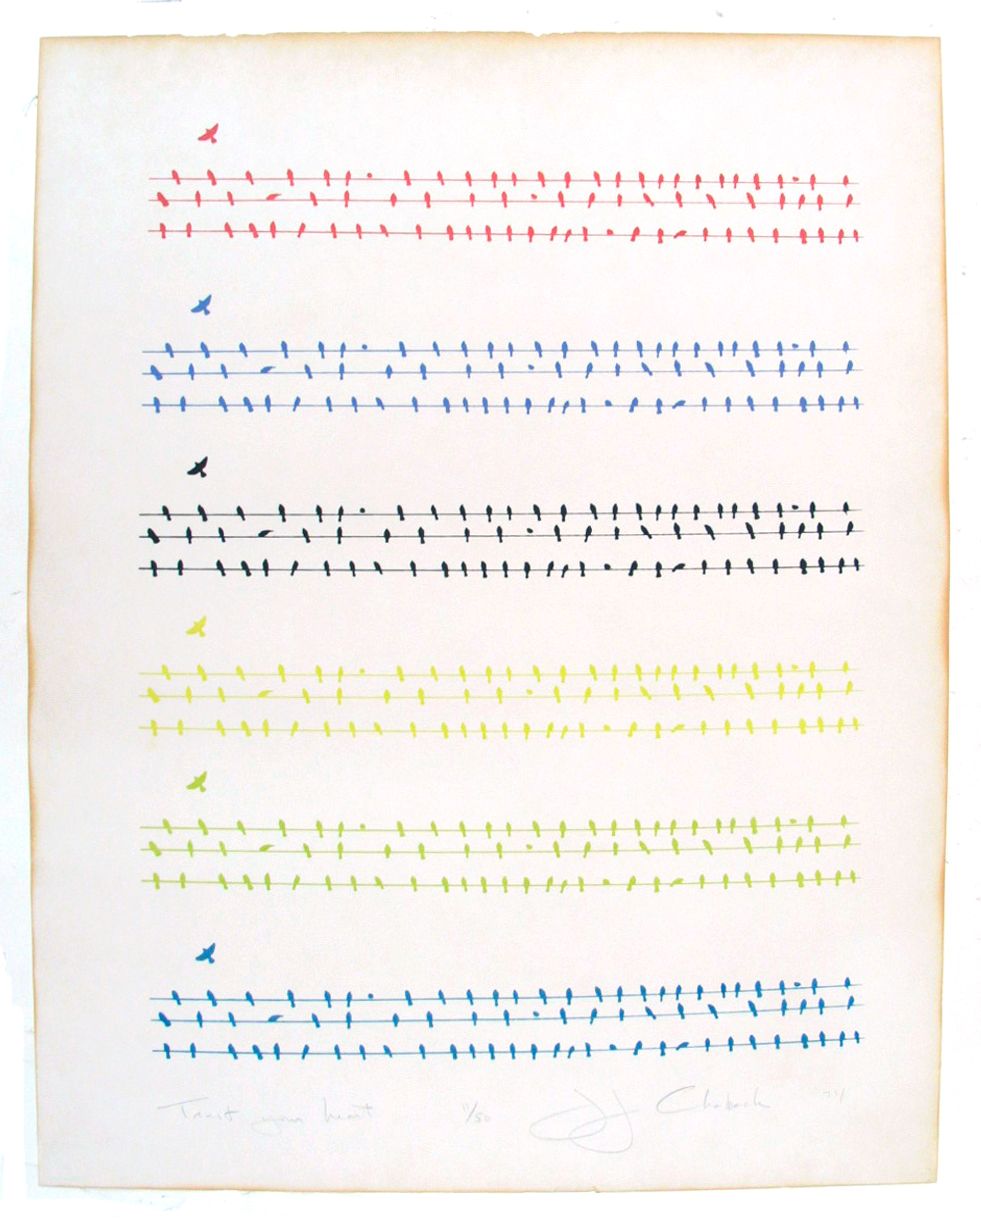 Trust your heart 11/50 JJ Chaback